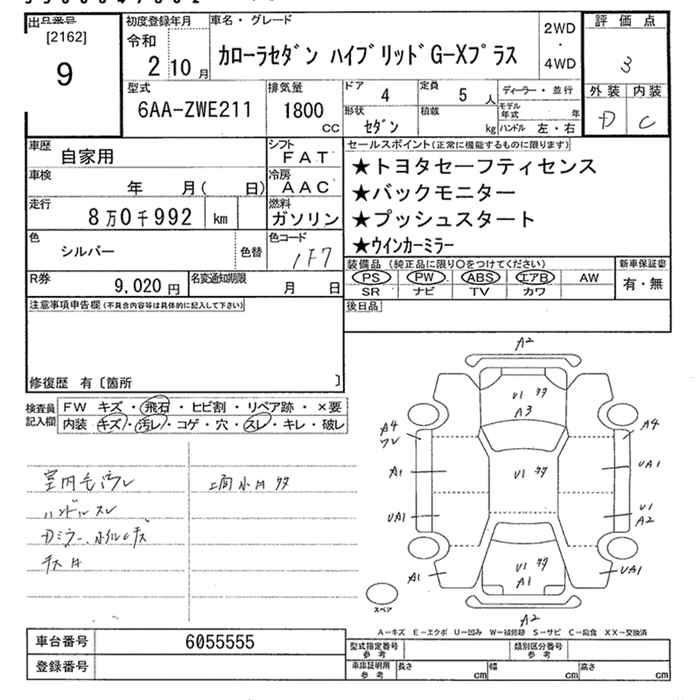 出品番号
[2162]
9
初度登録年月
令和
2 10 月
車名・グレード
カローラセダン ハイブリッドG-Xプラス
2WD
・
4WD
評価点
3
外装 内装
D C
型式
6AA-ZWE211
排気量
1800
CC
ドア
4
定員
5 人
ディーラー・並行
形状
セダン
積載
kg
モデル年式 年
ハンドル 左・右
車歴
自家用
シフト
FAT
車検
年 月( 日)
冷房
AAC
走行
8万0千992 km
燃料
ガソリン
色
シルバー
色替
色コード
1F7
R券
9,020 円
名変通知期限
月 日
セールスポイント(正常に機能するものに限ります)
★トヨタセーフティセンス
★バックモニター
★プッシュスタート
★ウインカーミラー
装備品(純正品に限り○をつけてください)
PS PW ABS エアB AW
SR ナビ TV カワ
新車保証書
有・無
後日品
注意事項申告欄(不具合内容等は具体的に記入して下さい)
修復歴 有〔箇所 〕
検査員
記入欄
FW キズ・飛石・ヒビ割・リペア跡・×要
内装 キズ・汚レ・コゲ・穴・スレ・キレ・破レ
室内色汚レ
ハンドルスレ
上面小凹多
A2
U1 多
A3
A4
A4
A1
U1 多
UA1
UA1
U1
A2
A1
U1 多
A1
UA1
A2
スペア
A―キズ E―エクボ U―凹み W―補修跡 S―サビ C―腐食 XX―交換済
車台番号 6055555
登録番号
型式指定番号
参考
類別区分番号
参考
車庫証明用
参考
長さ cm 幅 cm 高さ cm